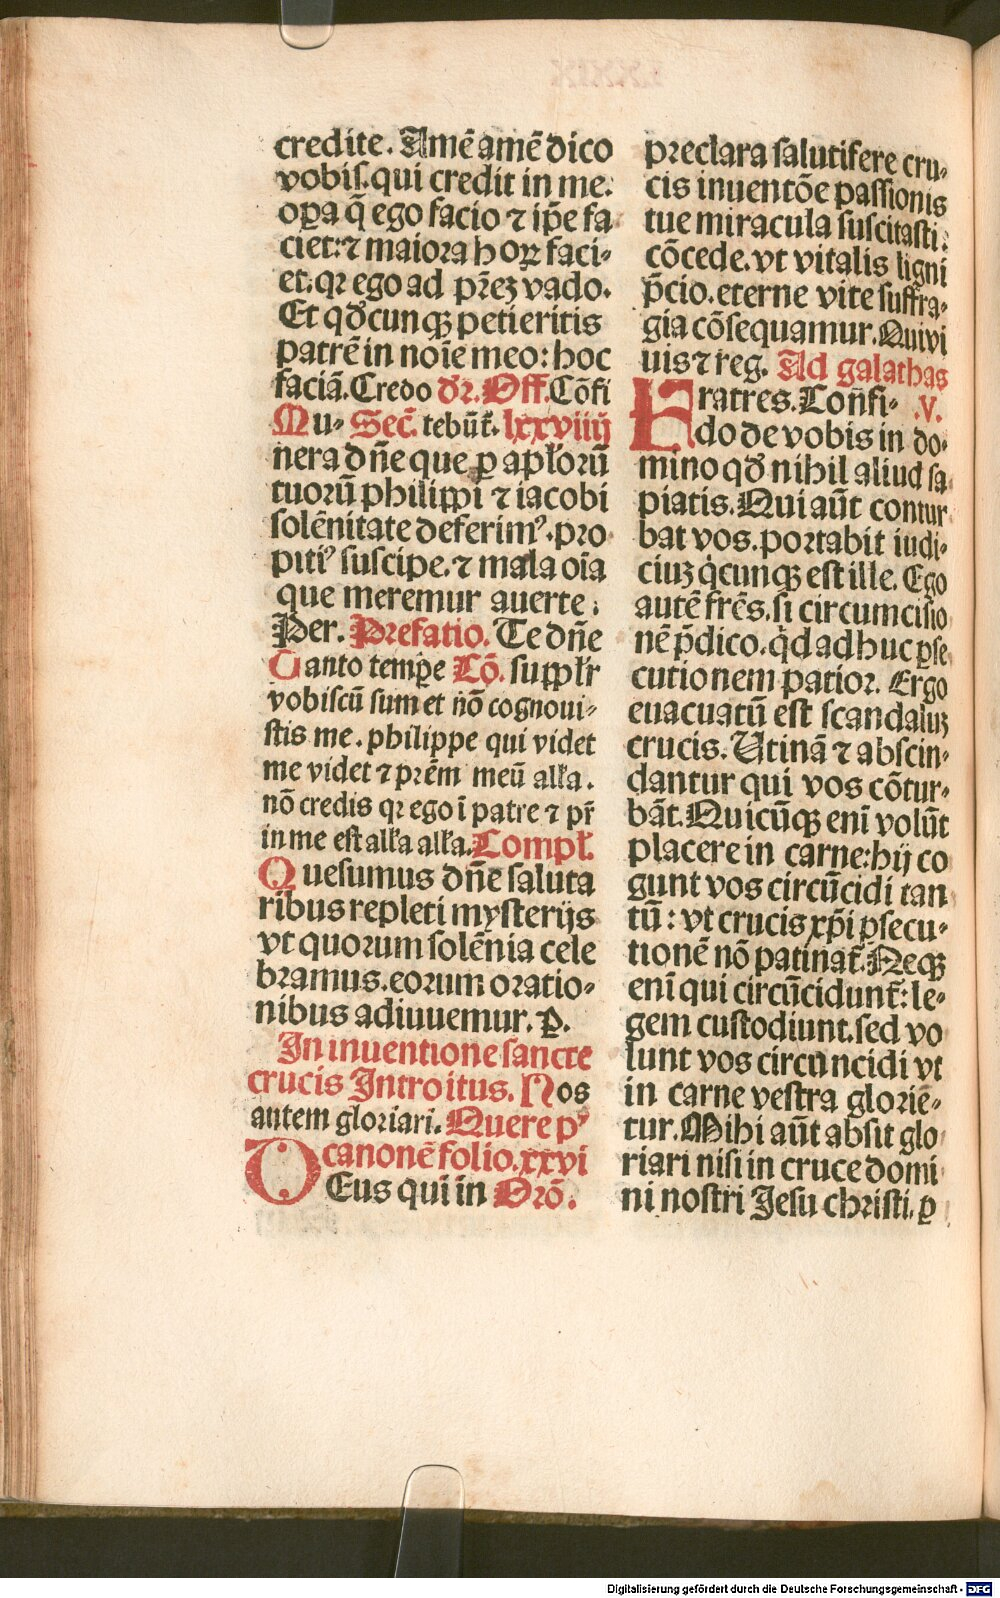 credite. Amē amē dico
vobis. qui credit in me.
oꝑa q̄ ego facio ⁊ ip̄e fa
ciet: ⁊ maiora hoꝝ faci-
et. qꝛ ego ad pr̄eꝫ vado.
Et qd̄cunqꝫ petieritis
patrē in noīe meo: hoc
faciā. Credo dꝛ. Off. Cōfi
Mu- Secͣ. tebūt̄. lxxviiij
nera dn̄e que ꝓ apl̄oꝝū
tuorū philippi ⁊ iacobi
solēnitate deferimꝰ. pro
pitiꝰ suscipe. ⁊ mala oīa
que meremur auerte.
Per. Prefatio. Te dn̄e
Tanto temꝑe Cō. suppl̄r
vobiscū sum et nō cognoui-
stis me. philippe qui videt
me videt ⁊ prēm meū all̄a.
nō credis qꝛ ego ī patre ⁊ pr̄
in me est all̄a all̄a. Compl̄.
Quesumus dn̄e saluta
ribus repleti mysterijs
vt quorum solēnia cele
bramus. eorum oratio-
nibus adiuuemur. ꝑ.
In inuentione sancte
crucis Introitus. Nos
autem gloriari. Quere pꝰ
canonē folio. xxvi
DEus qui in Orō.
preclara salutifere cru-
cis inuentōe passionis
tue miracula suscitasti:
cōcede. vt vitalis ligni
p̄cio. eterne vite suffra-
gia cōsequamur. Qui vi
uis ⁊ reg. Ad galathas
Fratres. Confi- .V.
do de vobis in do-
mino qd̄ nihil aliud sa
piatis. Qui aūt contur
bat vos. portabit iudi-
ciuꝫ q̇cunqꝫ est ille. Ego
autē fr̄es. si circumcisio
nē p̄dico. q̇d adhuc ꝑse
cutionem patior. Ergo
euacuatū est scandaluꝫ
crucis. Utinā ⁊ abscin-
dantur qui vos cōtur-
bāt. Quicūqꝫ enī volūt
placere in carne: hij co
gunt vos circūcidi tan
tū: vt crucis xp̄i ꝑsecu-
tionē nō patinat̄. Neqꝫ
enī qui circūcidunt̄: le-
gem custodiunt. sed vo
lunt vos circuncidi vt
in carne vestra gloriē-
tur. Mihi aūt absit glo
riari nisi in cruce domi
ni nostri Jesu christi. ꝑ
Digitalisierung gefördert durch die Deutsche Forschungsgemeinschaft - DFG